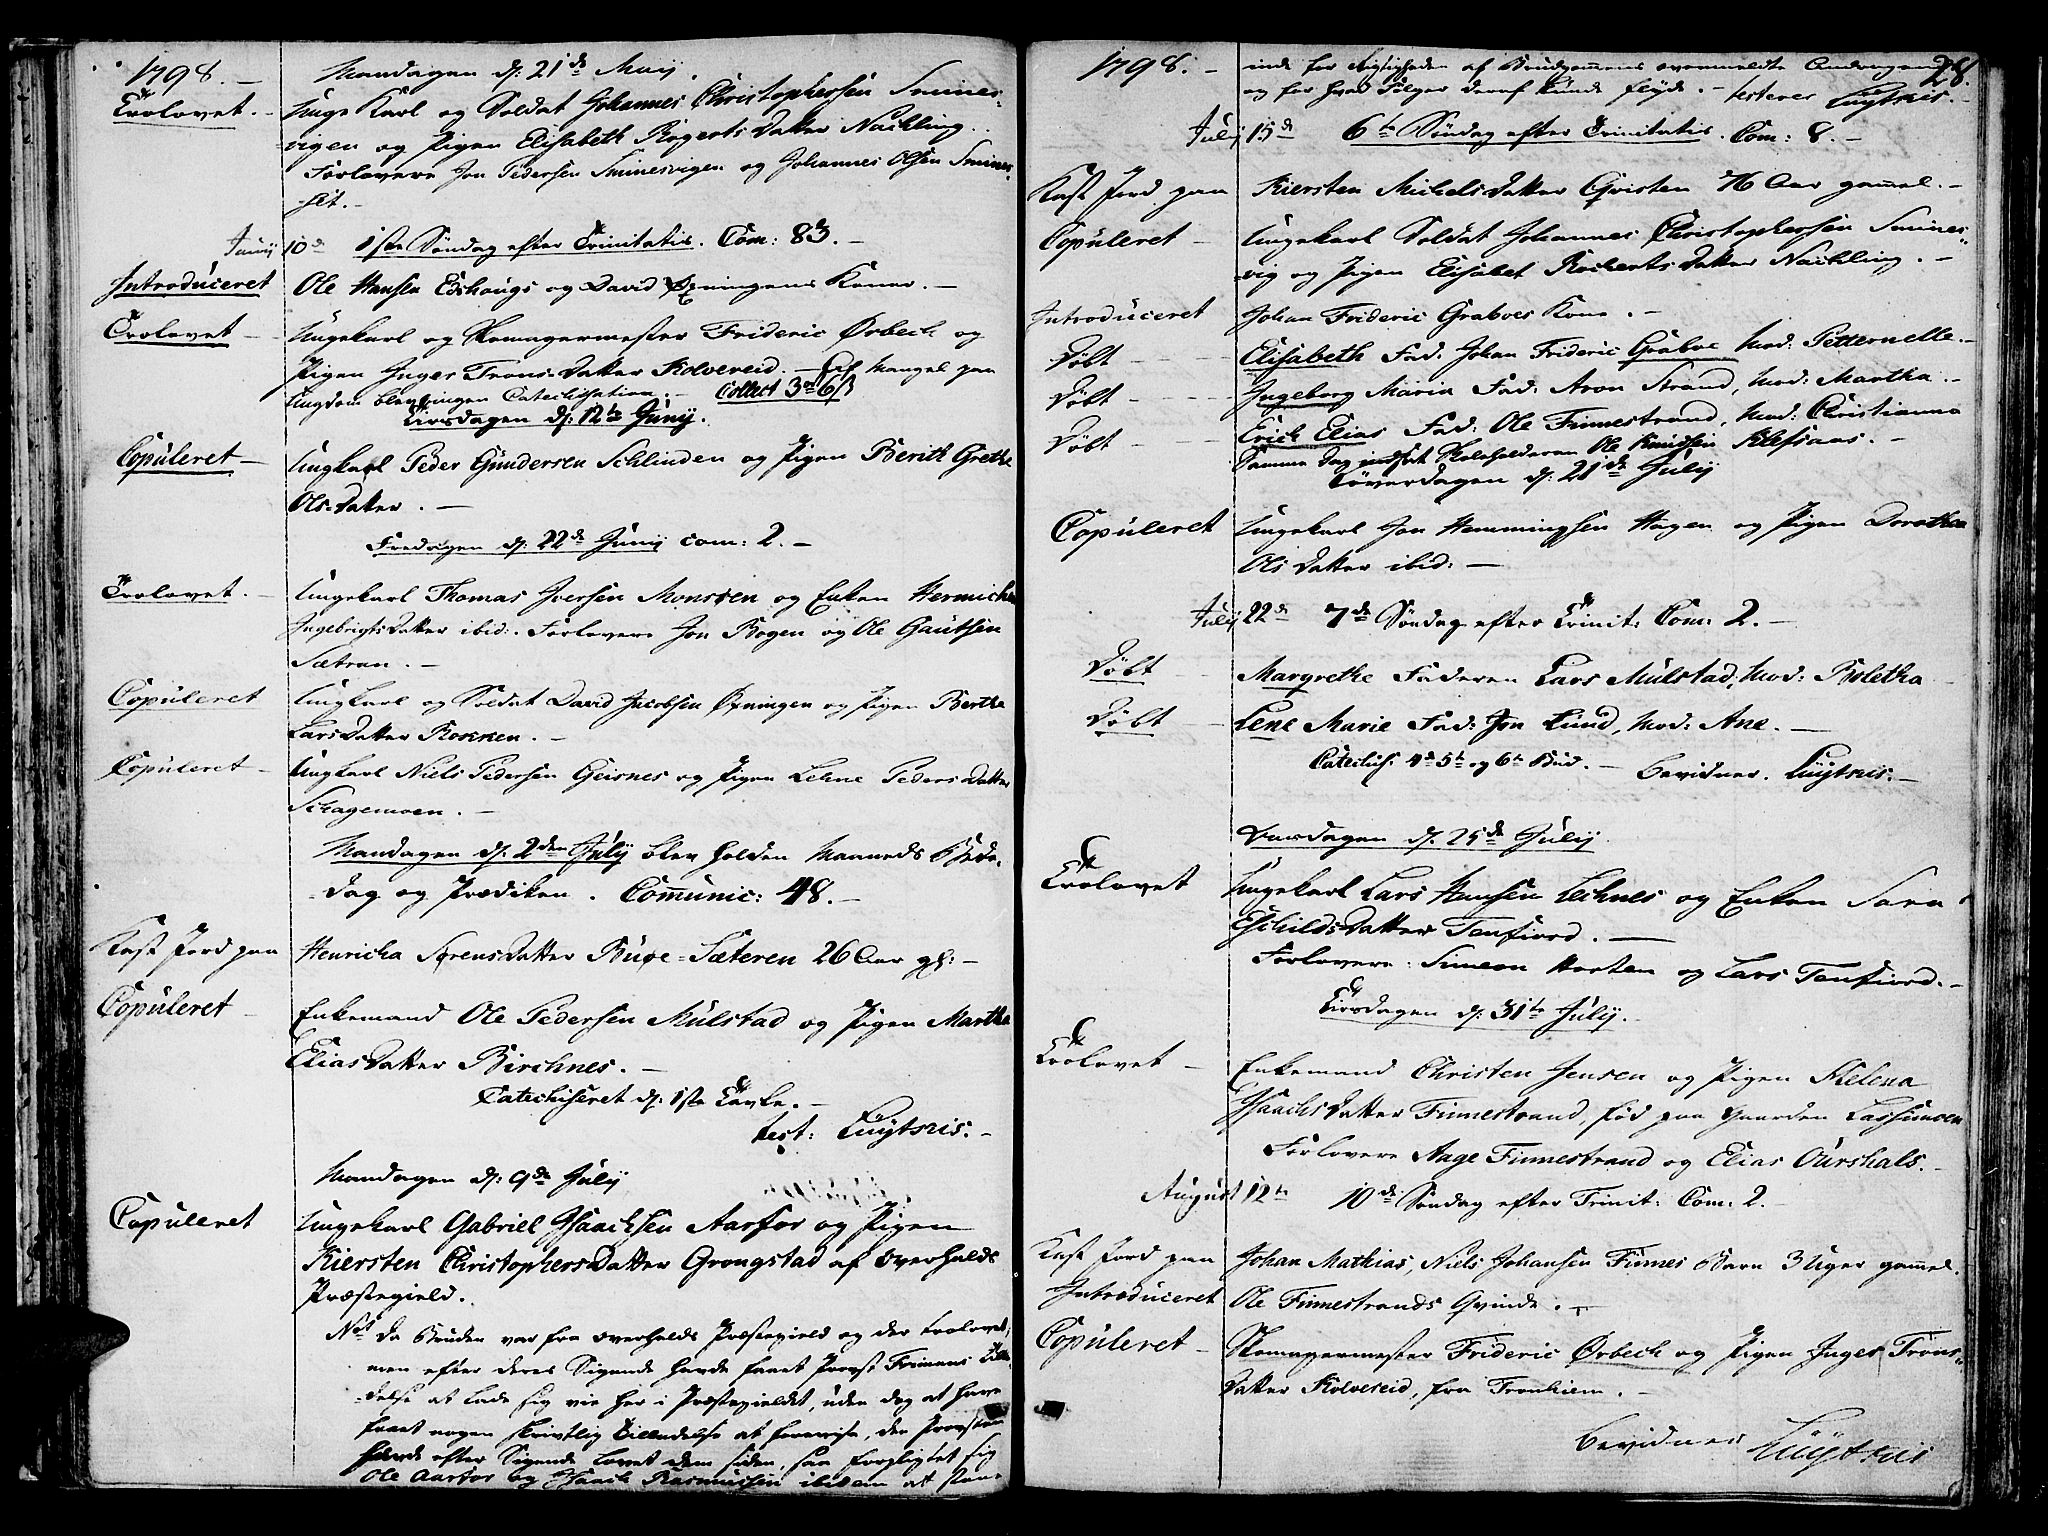 1798. -
Mandagen d: 21de Maij.
Trolovet. - Unge Karl og Soldat Johannes Christophersen Smines-
vigen og Pigen Elisabeth Rogerts Datter Nachling.
Forlovere Jon Pedersen Sminesvigen og Johannes Olsen Smines-
set. -
Junij 10de 1ste Søndag efter Trinitatis. Com: 83. -
Introduceret Ole Hansen Edshougs og David Øxningens Koner. -
Trolovet - Ungekarl og Skomagermester Frideric Ørbech og
Pigen Inger Trons Datter Kolvereid. - Af Mangel paa
Ungdom blev ingen Catechisation. - Collect 3 ort 6 ß
Tirsdagen d: 12te Junij.
Copuleret - Ungkarl Peder Gundersen Schlinden og Pigen Berith Grethe
Ols Datter. -
Fredagen d: 22de Junij Com: 2. -
Trolovet. - Ungekarl Thomas Iversen Monssen og Enken Hermicha
Ingebrigts Datter ibid: Forlovere Jon Bogen og Ole Gautsen
Sætran. -
Copuleret Ungkarl og Soldat David Jacobsen Øxningen og Pigen Berthe
Lars Datter Rokken. -
Copuleret - Ungkarl Niels Pedersen Geisnes og Pigen Lehne Peders Datter
Schagemoen. -
Mandagen d: 2den Julij blev holden Maaneds Bede-
Dag og Prædiken. Communic: 48. -
Kast Jord paa Henricha Sørens Datter Buøe-Sæteren 26 Aar gl: -
Copuleret - Enkemand Ole Pedersen Mulstad og Pigen Martha
Elias Datter Birchnes. -
Catechiseret d: 1ste Tavle. -
test: Luytkis. -
Mandagen d: 9de Julij
Copuleret Ungekarl Gabriel Isaachsen Aarfor og Pigen
Kiersten Christophers Datter Grongstad af Overhalds
Præstegield.
Not: Da Bruden var fra Overhalds Præstegield og der trolovet;
men efter deres Sigende havde faaet Provst Frimans Till-
delse at lade sig vie her i Præstegieldet, uden dog at have
faaet nogen skrivtlig Tilladelse at forevise, den Provsten
havde efter Sigende lovet dem siden, saa forpligtet sig
Ole Aarfor og Isaach Rasmussen ibidem at staae
1798. - 28.
inde for Rigtigheden af Brudgommens ovenmeldte Andragende
og for hvad Følger deraf kunde flyde. - testerer Luytkis. -
Julij 15de 6te Søndag efter Trinitatis. Com: 8. -
Kast Jord paa Kiersten Michels Datter Qvisten 76 Aar gammel. -
Copuleret - Ungekarl Soldat Johannes Christophersen Smines-
vig og Pigen Elisabet Rocherts Datter Nachling. -
Introduceret Johan Frideric Graboes Kone. -
Døbt - Elisabeth Fad: Johan Frideric Graboe Mod: Petternelle. -
Døbt - Ingeborg Maria Fad: Aron Strand, Mod: Martha. -
Døbt - Erich Elias Fad: Ole Finnestrand, Mod: Christianna
Samme Dag indsat Skoleholderen Ole Knutsen Klefsaas. -
Løverdagen d: 21de Julij
Copuleret Ungekarl Jon Hemmingsen Hagen og Pigen Dorothea
Ols Datter ibid: -
Julij 22de 7de Søndag efter Trinit: Com: 2. -
Døbt - Margrethe Faderen Lars Mulstad, Mod: Boletha
Døbt - Lene Marie Fad: Jon Lund, Mod: Ane. -
Catechis: 4de 5te og 6te Bud. - bevidner. Luytkis. -
Onsdagen d: 25de Julij
Trolovet Ungekarl Lars Hansen Lechnes og Enken Sara
Eschilds Datter Tenfiord. -
Forlovere: Simeon Horten og Lars Tenfiord. -
Tirsdagen d: 31te Julij. -
Trolovet - Enkemand Christen Jensen og Pigen Helena
Isaachs Datter Finnestrand, fød paa Gaarden Lassemoen
Forlovere Aage Finnestrand og Elias Ourshals. -
August 12te 10de Søndag efter Trinit: Com: 2. -
Kast Jord paa Johan Mathias, Niels Johansen Finnes Barn 3 Uger gammel.
Introduceret Ole Finnestrands Qvinde. -
Copuleret - Skomagermester Frideric Ørbech og Pigen Inger Trons-
Datter Kolvereid, fra Tronhiem. -
bevidner Luytkis